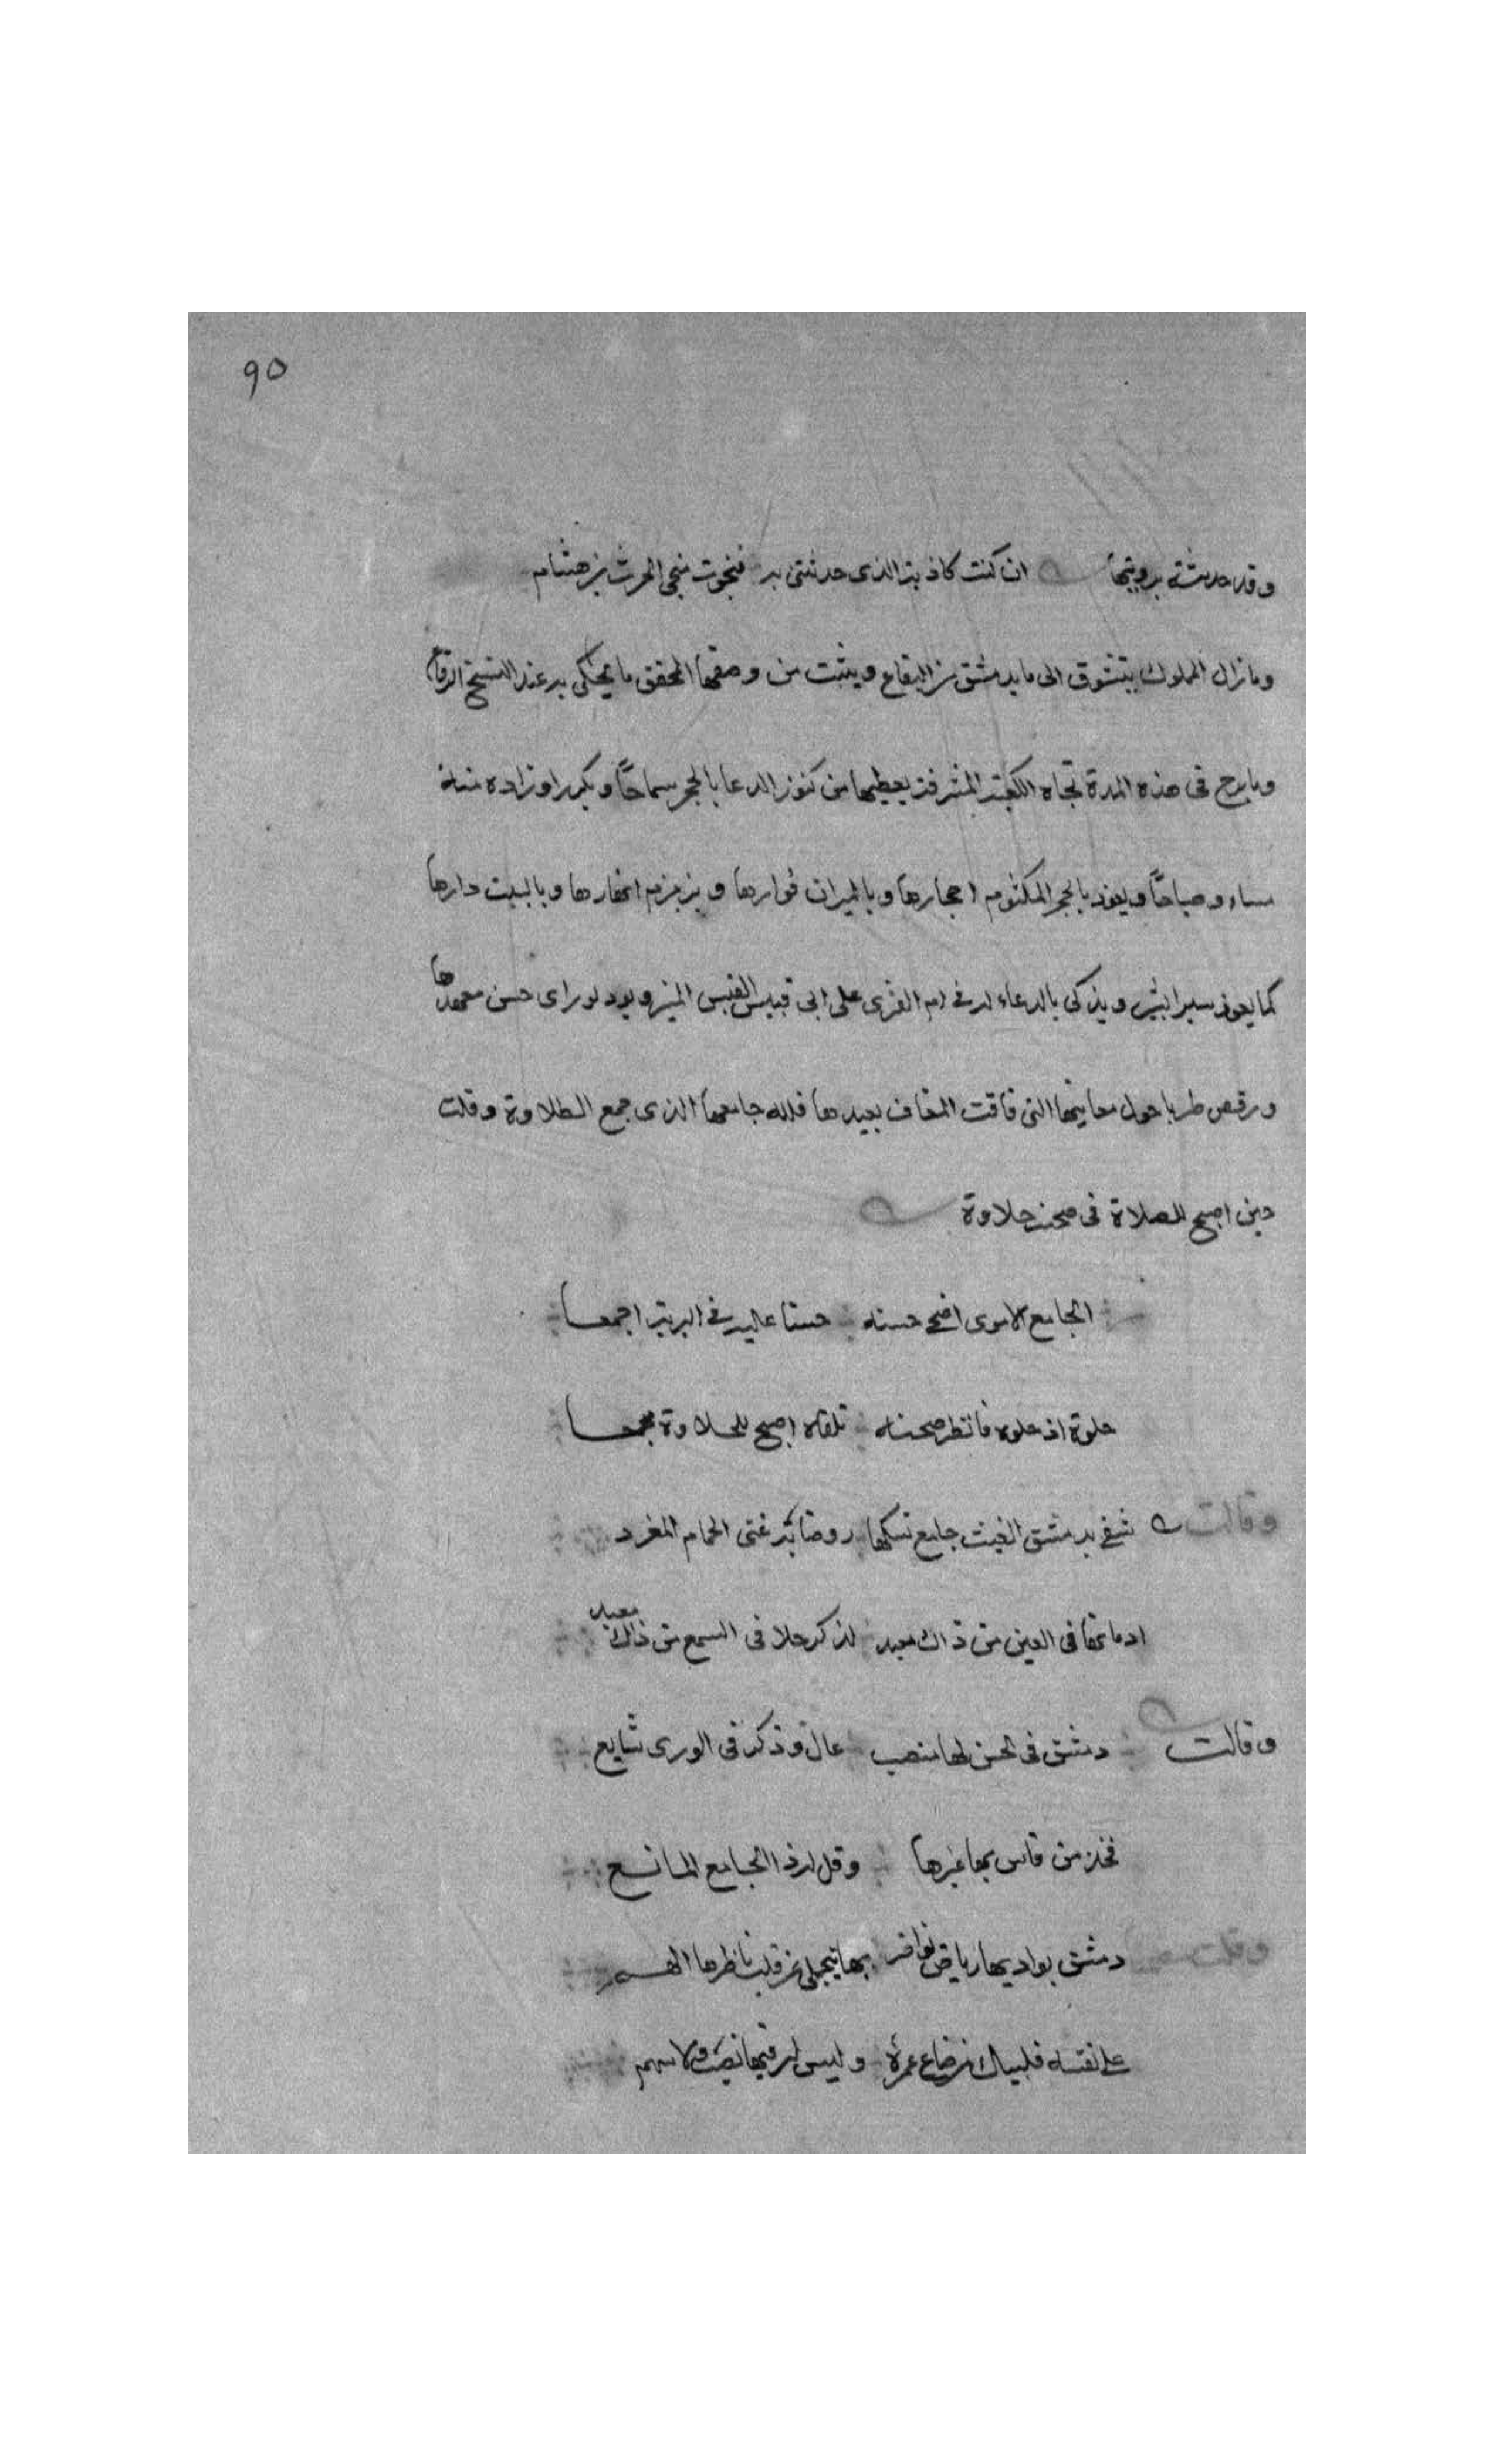 ٩٥
وقد حدثته برويتها ان كنت كاذبة الذى حدثتنى به فنجوت منجى الحرث بن هشام
ومازال المملوك يتشوق الى ما بدمشق من البقاع ويثبت من وصفها المحقق ما يحكى به عند النسخ الرقاع
وما برح فى هذه المدة تجاه الكعبة المشرفة يعطيها من كنوز الدعا بالحجر سماحًا ويكرر اوراده
مساء وصباحًا ويعوذ بالحجر المكتوم احجارها وبالميزان فوارها وبزمزم انهارها وبالبيت دارها
كما يعوذ بسير ويذكى بالدعاء له فى ام القرى على ابى قبيس القبس المنير ويود لو راى حسن معهدها
ورقص طربا حول مغانيها التى فاقت المغاف بعيدها فلله جامعها الذى جمع الطلاوة وقلت
حين اصبح للصلاة فى صحنه حلاوة
الجامع الاموى اضحى حسنه حسنا عليه فى البرية اجمعا
حلوة اذ حلوه فانظر صحنه تلقاه اصبح للحلاوة مجمعا
وقالت شفى بدمشق الغيث جامع نسكها روضا به غنى الحمام المغرد
اذ ما زها فى العين من ذاك معبد لذكر حلا فى السمع من ذاك معبد
وقالت دمشق فى الحسن لها منصب عال وذكر فى الورى شايع
فخل من قاس بها غيرها وقل له ذا الجامع المانع
وقلت دمشق بواديها رياض نواضر بها ينجلى عن قلب ناظرها الهم
على نفسه فليبك من ضاع عمره وليس له فيها نصيب ولا سهم